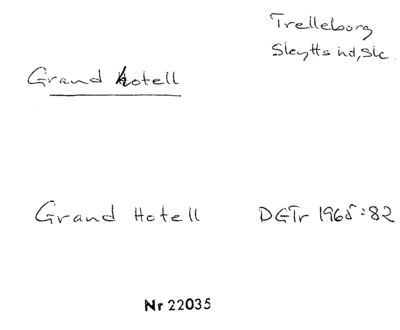 Trelleborg
Skytts hd, Sk.
Grand hotell
Grand Hotell DGTr 1965:82
Nr 22035